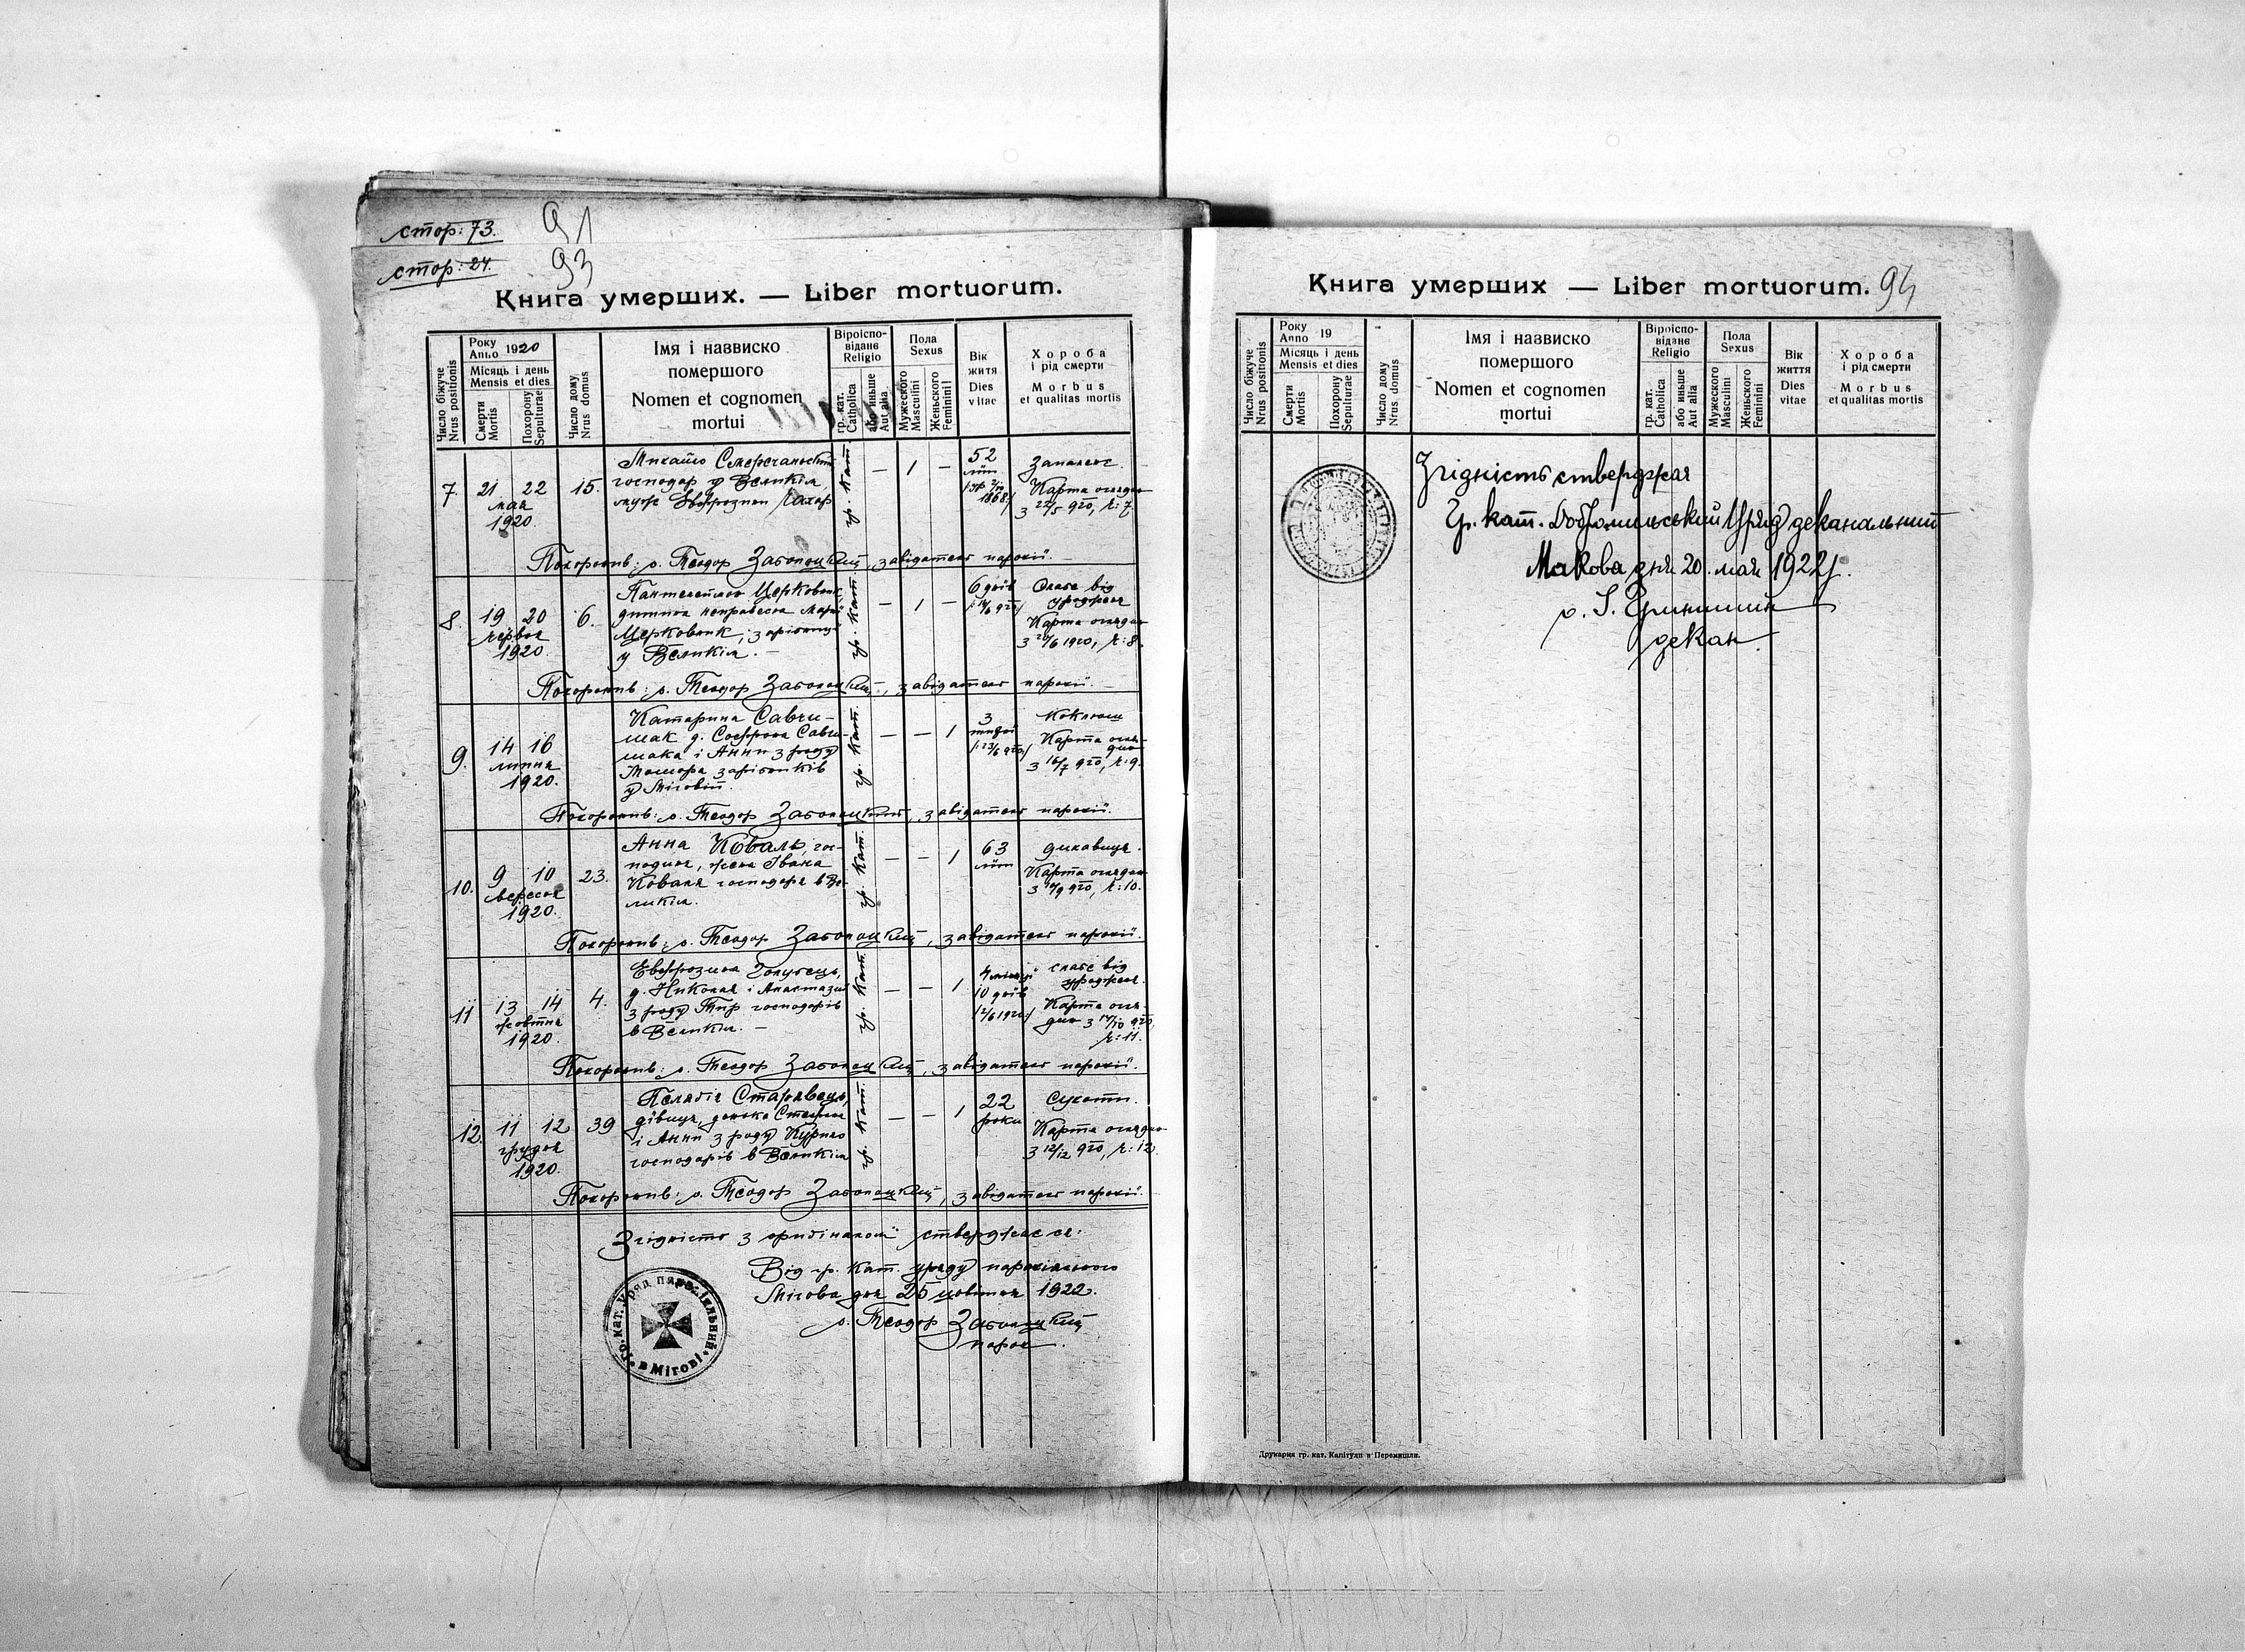 стор: 73.
91
стор: 24.
93
Книга умерших. — Liber mortuorum.
Число біжуче
Nrus positionis
Року
Anno 1920
Місяць і день
Mensis et dies
Смерти
Mortis
Похорону
Sepulturae
Число дому
Nrus domus
Імя і назвиско
помершого
Nomen et cognomen
mortui
Віроіспо-
відане
Religio
гр. кат.
Catholica
або иньше
Aut alia
Пола
Sexus
Мужеского
Masculini
Женьского
Feminini
Вік
житя
Dies
vitae
Хороба
і рід смерти
Morbus
et qualitas mortis
7. 21 22
мая
1920.
15.
Михайло
господар у Великім,
муж Евфрозини
гр. кат.
— 1 —
52
літ
1868
Запаленє.
Карта оглядин
з 22/5 920, ч: 7.
Похоронив: о. Теодор Заболоцкий, завідатель парохії.
8. 19 20
червня
1920.
6.
Пантелеймон Церковник,
дитина неправесна Марії
Церковник, зарібниці
у Великім. —
гр. кат.
— 1 —
6 днів
Слабе від
уродженя
Карта оглядин
з 20/6 1920, ч: 8.
Похоронив: о. Теодор Заболоцкий, завідатель парохії. —
9. 14 16
липня
1920.
Катарина Савчи-
шак д. Софрона Савчи-
шака і Анни з роду
зарібників
у Міговій.
гр. кат.
— — 1
3
тижні
Коклюш
Карта огля-
дин
з 16/7 920, ч: 9.
Похоронив: о. Теодор Заболоцкий, завідатель парохії.
10. 9 10
вересня
1920.
23.
Анна Коваль, гос-
подиня, жена Івана
Коваля господаря в Ве-
ликім.
гр. кат.
— — 1
63
літ
дихавиця.
Карта оглядин
з 10/9 920, ч: 10.
Похоронив: о. Теодор Заболоцкий, завідатель парохії.
11 13 14
жовтня
1920.
4.
Евфрозина Голубець,
д. Николая і Анастазиї
з роду Тир господарів
в Великім. —
гр. кат.
— — 1
4 місяці
10 днів
слабе від
уродженя.
Карта огля-
дин з 14/10 920,
ч: 11.
Похоронив: о. Теодор Заболоцкий, завідатель парохії.
12. 11 12
грудня
1920.
39
Пелягія Старявець,
дівиця, донька Стефана
і Анни з роду Курило
господарів в Великім
гр. кат.
— — 1
22
роки
Сухоти.
Карта оглядин
з 12/12 920, ч: 12.
Похоронив: о. Теодор Заболоцкий, завідатель парохії.
Згідність з оригіналом стверджаєся:
Від гр. кат. уряду парохіяльного
Мігова дня 25 цовітня 1922.
о. Теодор Заболоцкий
парох.
гр. кат. уряд парохіяльний
в Мігові
Книга умерших — Liber mortuorum.
94
Число біжуче
Nrus positionis
Року
Anno 19
Місяць і день
Mensis et dies
Смерти
Mortis
Похорону
Sepulturae
Число дому
Nrus domus
Імя і назвиско
помершого
Nomen et cognomen
mortui
Віроіспо-
відане
Religio
гр. кат.
Catholica
або иньше
Aut alia
Пола
Sexus
Мужеского
Masculini
Женьского
Feminini
Вік
життя
Dies
vitae
Хороба
і рід смерти
Morbus
et qualitas mortis
Згідність стверджая
Гр. кат. Добромильський Уряд деканальний
Макова дня 20. мая 1922 р.
о. І. Гринишин
декан.
Друкарня гр. кат. Капітули в Перемишли.